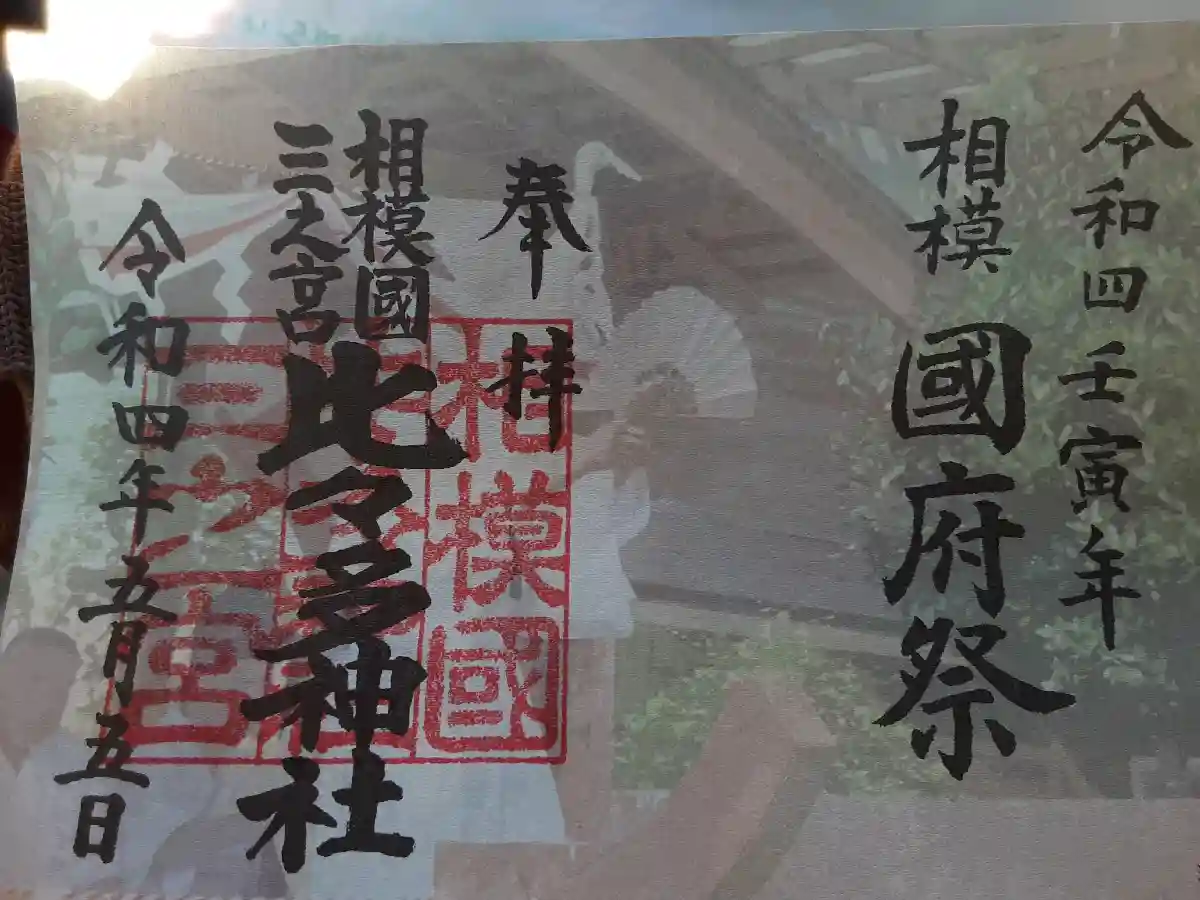 令和四壬寅年
相模國府祭
奉拝
相模國
三之宮
比々多神社
令和四年五月五日
相模國
三ノ宮